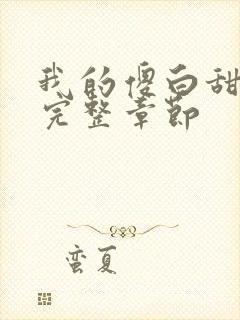 我的傻白甜
完整章节
蛮夏